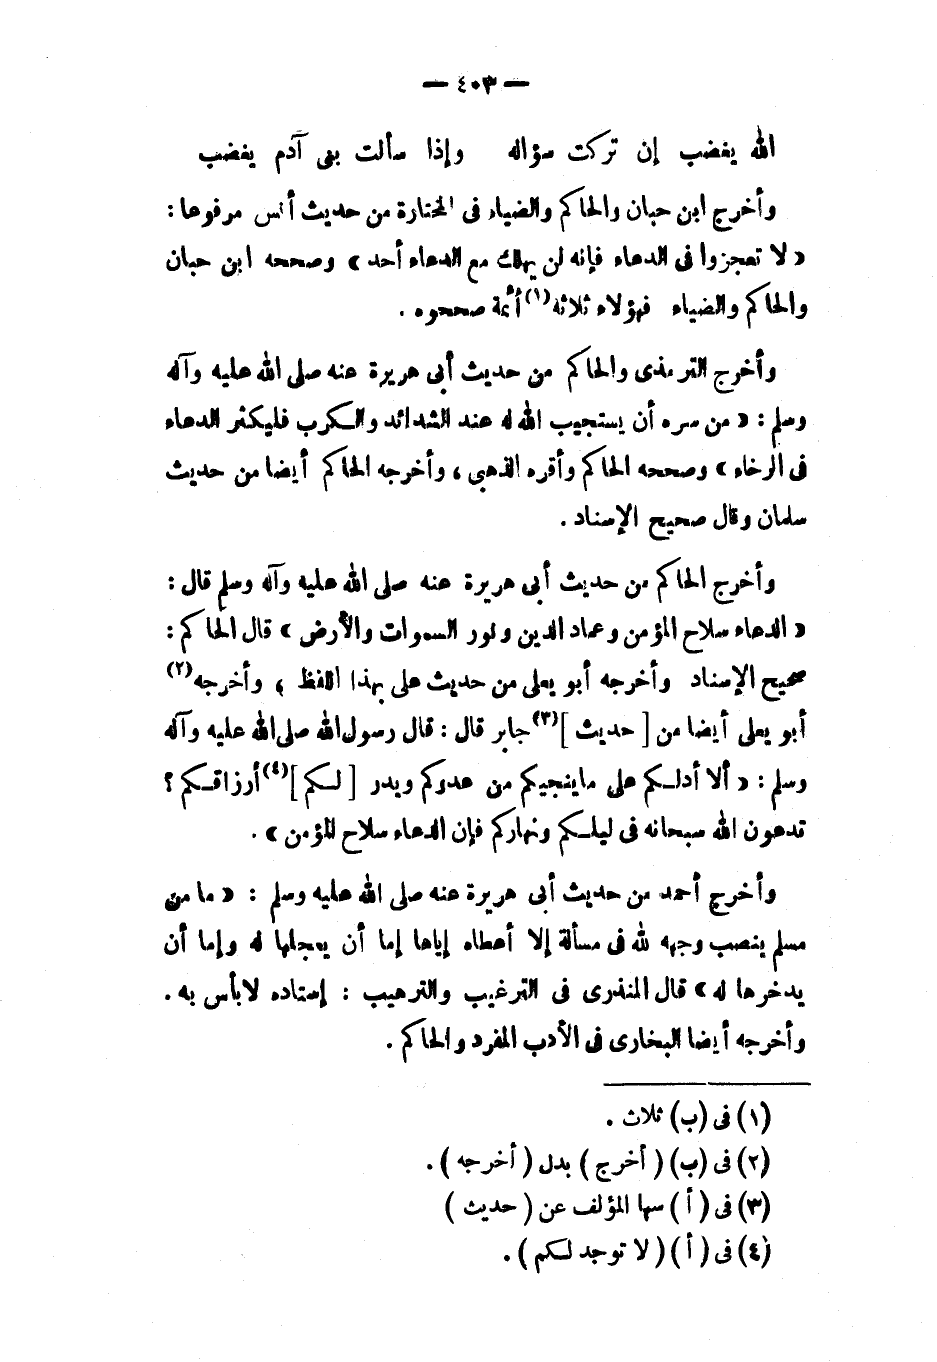 — ٤٠٣ —
الله يغضب إن تركت سؤاله وإذا سألت بنى آدم يغضب
وأخرج ابن حبان والحاكم والضياء فى المختارة من حديث أنس مرفوعا :
« لا تعجزوا فى الدعاء فإنه لن يهلك مع الدعاء أحد » وصححه ابن حبان
والحاكم والضياء فهؤلاء ثلاثة(١) أئمة صححوه .
وأخرج الترمذى والحاكم من حديث أبى هريرة عنه صلى الله عليه وآله
وسلم : « من سره أن يستجيب الله له عند الشدائد والكرب فليكثر الدعاء
فى الرخاء » وصححه الحاكم وأقره الذهبى ، وأخرجه الحاكم أيضا من حديث
سلمان وقال صحيح الإسناد .
وأخرج الحاكم من حديث أبى هريرة عنه صلى الله عليه وآله وسلم قال :
« الدعاء سلاح المؤمن وعماد الدين ونور السموات والأرض » قال الحاكم :
صحيح الإسناد وأخرجه أبو يعلى من حديث على بهذا اللفظ ، وأخرجه(٢)
أبو يعلى أيضا من [ حديث ](٣) جابر قال : قال رسول الله صلى الله عليه وآله
وسلم : « ألا أدلكم على ماينجيكم من عدوكم ويدر [ لكم ](٤) أرزاقكم ؟
تدعون الله سبحانه فى ليلكم ونهاركم فإن الدعاء سلاح المؤمن » .
وأخرج أحمد من حديث أبى هريرة عنه صلى الله عليه وسلم : « ما من
مسلم ينصب وجهه لله فى مسألة إلا أعطاه إياها إما أن يعجلها له وإما أن
يدخرها له » قال المنذرى فى الترغيب والترهيب : إستاده لابأس به .
وأخرجه أيضا البخارى فى الأدب المفرد والحاكم .
(١) فى (ب) ثلاث .
(٢) فى (ب) ( أخرج ) بدل ( أخرجه ) .
(٣) فى ( أ ) سها المؤلف عن ( حديث )
(٤) فى ( أ ) ( لا توجد لكم ) .